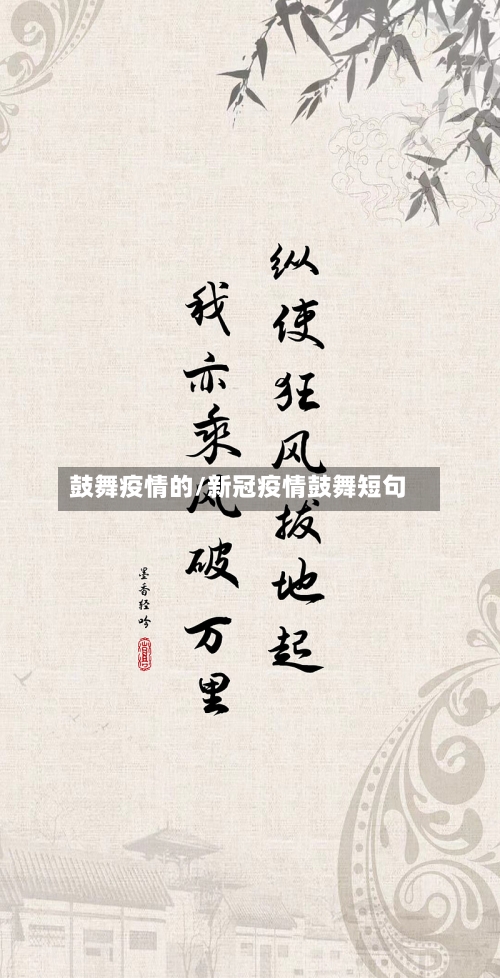 纵使狂风拔地起
我亦乘风破万里
墨香轻吟
鼓舞疫情的/新冠疫情鼓舞短句